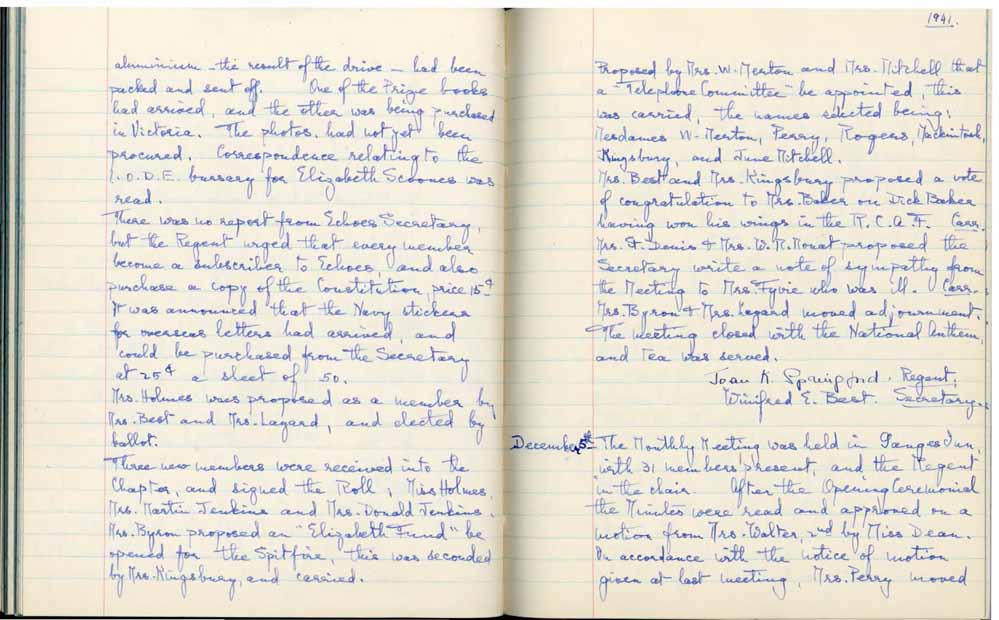 aluminium - the result of the drive - had been
packed and sent off. One of the Prize books
had arrived, and the other was being purchased
in Victoria. The photos. had not yet been
procured. Correspondence relating to the
I.O.D.E. bursary for Elizabeth Scoones was
read.
There was no report from Echoes Secretary,
but the Regent urged that every member
become a subscriber to Echoes, and also
purchase a copy of the Constitution, price 15¢
It was announced that the Navy stickers
for overseas letters had arrived, and
could be purchased from the Secretary
at 25¢ a sheet of 50.
Mrs. Holmes was proposed as a member by
Mrs. Best and Mrs. Layard, and elected by
ballot.
Three new members were received into the
Chapter, and signed the Roll; Miss Holmes,
Mrs. Martin Jenkins and Mrs. Donald Jenkins.
Mrs. Byron proposed an "Elizabeth Fund" be
opened for the Spitfire, this was seconded
by Mrs. Kingsbury, and carried.
1941.
Proposed by Mrs. W. Merton and Mrs. Mitchell that
a "Telephone Committee" be appointed, this
was carried, the names selected being:
Mesdames W. Merton, Perry, Rogers, Mackintosh,
Kingsbury, and June Mitchell.
Mrs. Best and Mrs. Kingsbury proposed a vote
of congratulation to Mrs. Baker on Dick Baker
having won his wings in the R.C.A.F. Carr.
Mrs. St. Denis & Mrs. W. R. Mouat proposed the
Secretary write a note of sympathy from
the Meeting to Mrs. Fyvie who was ill. Carr.
Mrs. Byron & Mrs. Layard moved adjournment.
The meeting closed with the National Anthem,
and Tea was served.
Joan K. Springford. Regent,
Winifred E. Best. Secretary.
December 5th The Monthly Meeting was held in Ganges Inn,
with 31 members present, and the Regent
in the chair. After the Opening Ceremonial
the Minutes were read and approved on a
motion from Mrs. Walter, 2nd by Miss Dean.
In accordance with the notice of motion
given at last meeting, Mrs. Perry moved